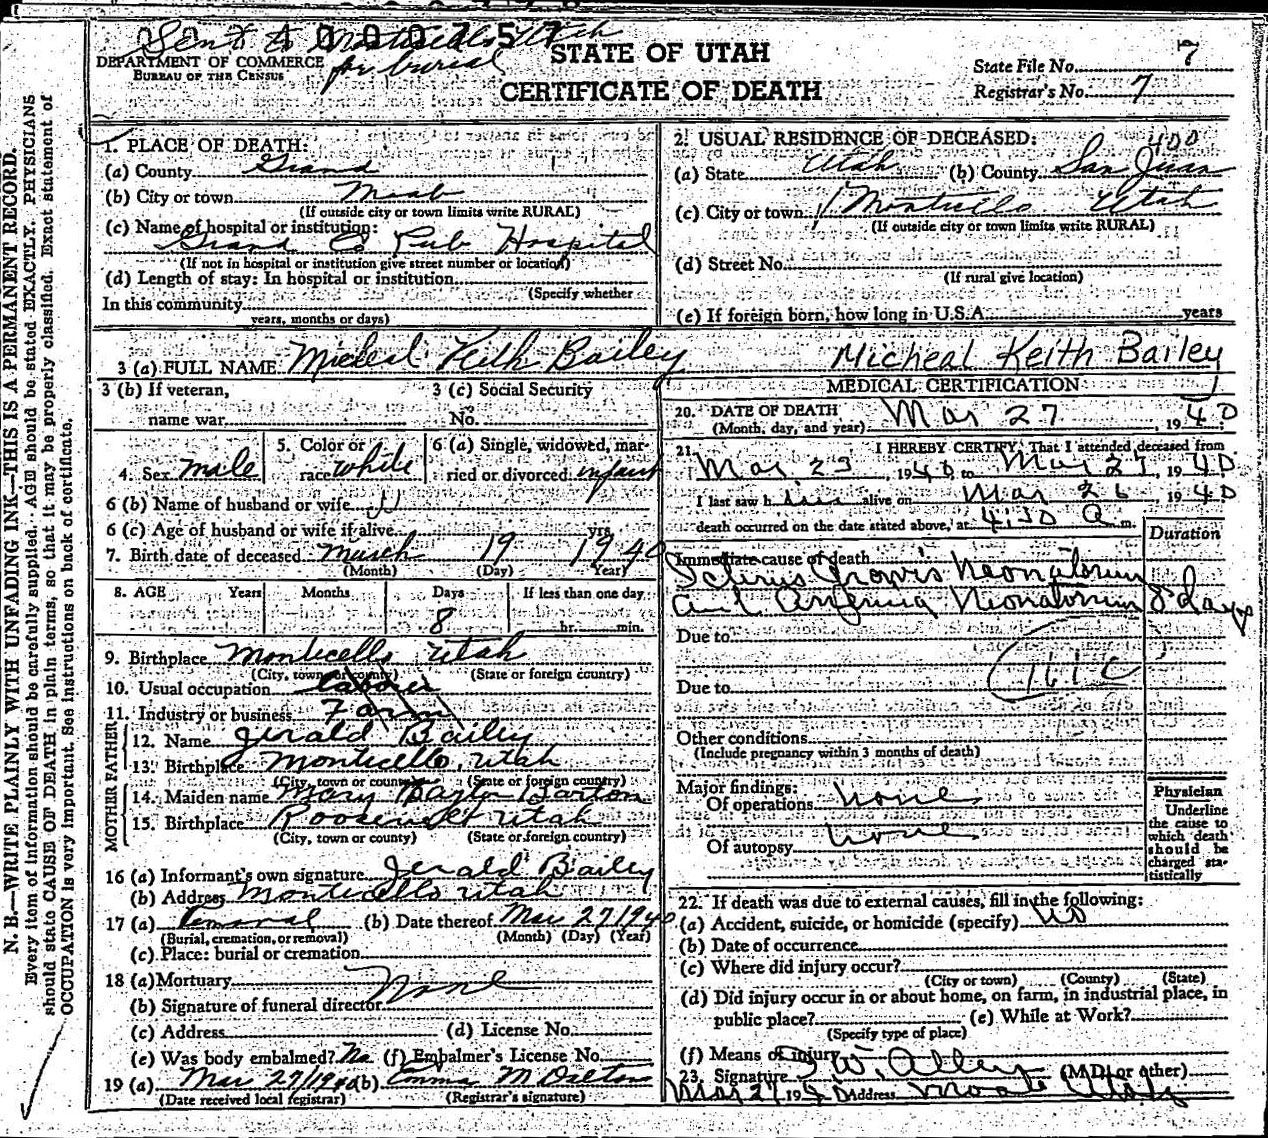 Sent to Monticello Utah
for burial
DEPARTMENT OF COMMERCE
BUREAU OF THE CENSUS
STATE OF UTAH
CERTIFICATE OF DEATH
State File No. 7
Registrar's No. 7
N. B.—WRITE PLAINLY WITH UNFADING INK—THIS IS A PERMANENT RECORD.
Every item of information should be carefully supplied. AGE should be stated EXACTLY. PHYSICIANS
should state CAUSE OF DEATH in plain terms, so that it may be properly classified. Exact statement of
OCCUPATION is very important. See instructions on back of certificate.
1. PLACE OF DEATH:
(a) County Grand
(b) City or town Moab
(If outside city or town limits write RURAL)
(c) Name of hospital or institution:
Grand Co Pub Hospital
(If not in hospital or institution give street number or location)
(d) Length of stay: In hospital or institution
(Specify whether
In this community
years, months or days)
2. USUAL RESIDENCE OF DECEASED:
400
(a) State Utah (b) County San Juan
(c) City or town Monticello Utah
(If outside city or town limits write RURAL)
(d) Street No.
(If rural give location)
(e) If foreign born, how long in U.S.A. years
3 (a) FULL NAME Micheal Keith Bailey
Micheal Keith Bailey
3 (b) If veteran,
name war
3 (c) Social Security
No.
4. Sex male
5. Color or
race white
6 (a) Single, widowed, mar-
ried or divorced infant
6 (b) Name of husband or wife
6 (c) Age of husband or wife if alive yrs.
7. Birth date of deceased March 19 1940
(Month) (Day) (Year)
8. AGE Years Months Days If less than one day
8 hr. min.
9. Birthplace Monticello Utah
(City, town or county) (State or foreign country)
10. Usual occupation Laborer
11. Industry or business Farm
FATHER
12. Name Jerald Bailey
13. Birthplace Monticello, Utah
(City, town or county) (State or foreign country)
MOTHER
14. Maiden name Mary Barton
15. Birthplace Roosevelt Utah
(City, town or county) (State or foreign country)
16 (a) Informant's own signature Jerald Bailey
(b) Address Monticello Utah
17 (a) Removal (b) Date thereof Mar 27 1940
(Burial, cremation, or removal) (Month) (Day) (Year)
(c) Place: burial or cremation
18 (a) Mortuary None
(b) Signature of funeral director
(c) Address (d) License No.
(e) Was body embalmed? No (f) Embalmer's License No.
19 (a) Mar 27/1940 (b) Emma M Dalton
(Date received local registrar) (Registrar's signature)
MEDICAL CERTIFICATION
20. DATE OF DEATH Mar 27, 1940
(Month, day, and year)
21. I HEREBY CERTIFY, That I attended deceased from
Mar 23, 1940, to Mar 27, 1940
I last saw him alive on Mar 26, 1940
death occurred on the date stated above, at 4:30 a m.
Duration
Immediate cause of death
Icterus Gravis Neonatorum
and Neonatorum 8 days
Due to
161c
Due to
Other conditions
(Include pregnancy within 3 months of death)
Major findings:
Of operations none
Of autopsy none
Physician
Underline
the cause to
which death
should be
charged sta-
tistically
22. If death was due to external causes, fill in the following:
(a) Accident, suicide, or homicide (specify) no
(b) Date of occurrence
(c) Where did injury occur?
(City or town) (County) (State)
(d) Did injury occur in or about home, on farm, in industrial place, in
public place? (e) While at Work?
(Specify type of place)
(f) Means of injury
23. Signature W. Allen (M.D. or other)
Mar 27 1940 Address Moab Utah